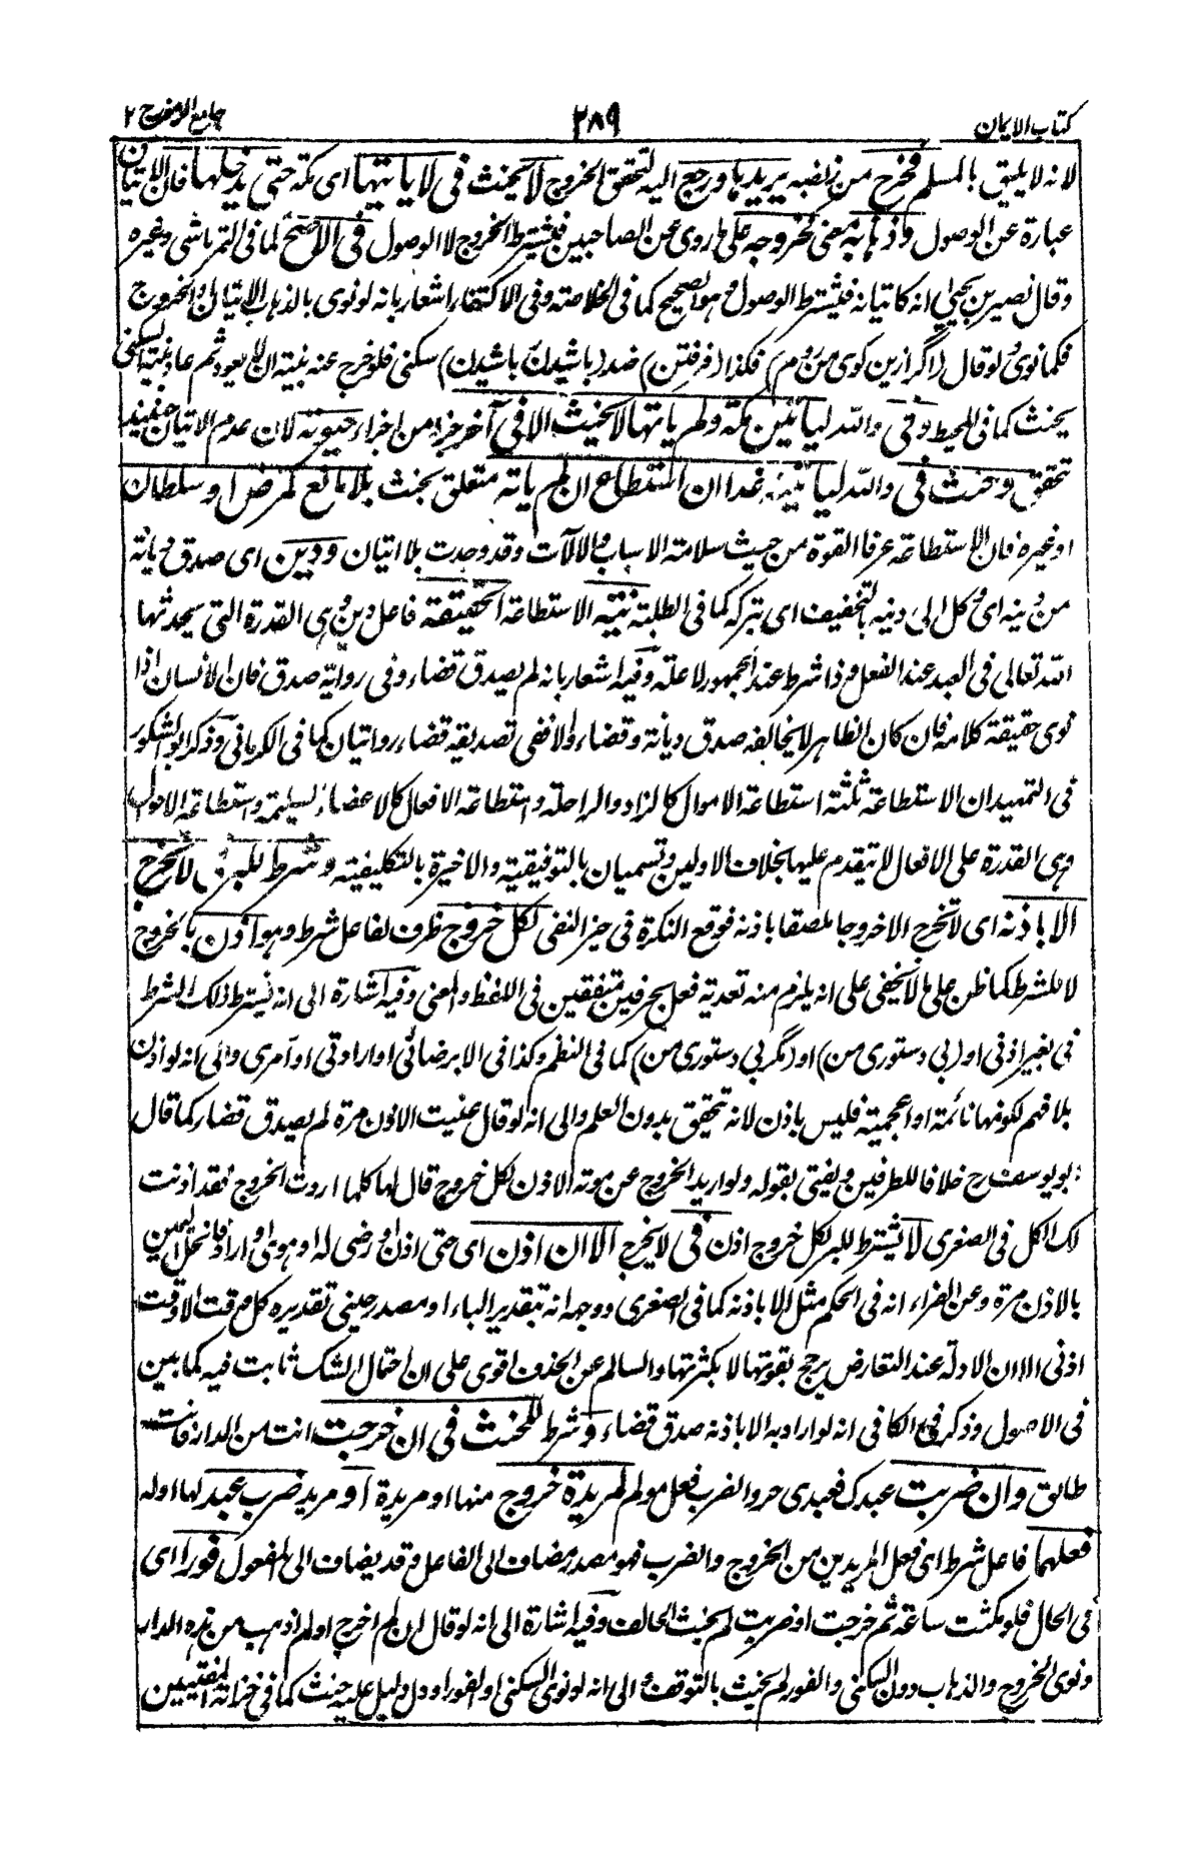 كتاب الايمان ٢٨٩ جامع الرموز ج ٢
لانه لا يليق بالمسلم فخرج من ربضه يريدها ورجع اليه لتحقق الخروج لا يحنث فى لا ياتيها اى مكة حتى يدخلها فان الاتيان
عبارة عن الوصول وذهابه معنى كخروجه على ما روى عن الصاحبين فيشترط الخروج لا الوصول فى الاصح كما فى التمرتاشى وغيره
وقال نصير بن يحيى انه كاتيانه فيشترط الوصول وهو الصحيح كما فى الخلاصة وفى الاكتفاء اشعار بانه لو نوى بالذهاب الاتيان او الخروج
فكما نوى ولو قال (اگر ازين كوى من روم) فكذا (فرفتن) ضد (باشيدن باشيدن) سكنى فلو خرج عنه بنية ان لا يعود ثم عاد بنية السكنى
يحنث كما فى المحيط وفى والله لياتين مكة ولم ياتها لا يحنث الا فى آخر جزء من اجزاء حيوته لان عدم الاتيان حينئذ
تحقق وحنث فى والله لياتينه غدا ان استطاع ان لم ياته متعلق بحنث بلا مانع كمرض او سلطان
او غيره فان الاستطاعة عرفا القوة من حيث سلامة الاسباب والآلات وقد وجدت بلا اتيان ودين اى صدق ديانة
من دينه اى وكل الى دينه بالتخفيف اى بتركه كما فى الطلبة نيته الاستطاعة الحقيقة فاعل دين وهى القدرة التى يحدثها
الله تعالى فى العبد عند الفعل وذا شرط عند الجمهور لا علة وفيه اشعار بانه لم يصدق قضاء وفى رواية صدق فان الانسان اذا
نوى حقيقة كلامه فان كان الظاهر لا يخالفه صدق ديانة وقضاء والا ففى تصديقه قضاء روايتان كما فى الكرمانى وذكر ابو الشكور
فى التمهيد ان الاستطاعة ثلثة استطاعة الاموال كالزاد والراحلة واستطاعة الافعال كالاعضاء السليمة واستطاعة الاحوال
وهى القدرة على الافعال لا يتقدم عليها بخلاف الاولين وتسميان بالتوفيقية والاخيرة بالتكليفية وشرط للبر فى لا تخرج
الا باذنه اى لا تخرج الا خروجا ملصقا باذنه فوقع النكرة فى حيز النفى لكل خروج ظرف لفاعل شرط وهو اذن بالخروج
لا للشرط كما ظن على ما لا يخفى على انه يلزم منه تعدية فعل بحرفين متفقين فى اللفظ والمعنى وفيه اشارة الى انه يشترط ذلك الشرط
فى بغير اذنى او (بى دستورى من) او (مگر بى دستورى من) كما فى النظم وكذا فى الا برضائى او ارادتى او آمرى والى انه لو اذن
بلا فهم لكونها نائمة او اعجمية فليس باذن لانه تحقق بدون العلم والى انه لو قال عنيت الاذن مرة لم يصدق قضاء كما قال
ابو يوسف رح خلافا للطرفين ويفتى بقوله ولو اريد الخروج عن موته الاذن لكل خروج قال لها كلما اردت الخروج فقد اذنت
لك الكل فى الصغرى لا يشترط للبر لكل خروج اذن فى لا يخرج الا ان اذن اى حتى اذن او رضى له او هوى او اراد فانحل اليمين
بالاذن مرة وعن الفراء انه فى الحكم مثل الا باذنه كما فى الصغرى ووجه انه بتقدير الباء او مصدر حينى تقديره كل وقت الا وقت
اذنى الا ان الادلة عند التعارض يرجح بقوتها لا بكثرتها والسالم عن الحذف اقوى على ان احتمال الشك ثابت فيه كما بين
فى الاصول وذكر فى الكافى انه لو اراد به الا باذنه صدق قضاء وشرط للحنث فى ان خرجت انت من الدار فانت
طالق وان ضربت عبدك فعبدى حر والضرب فعل مولم لمريدة خروج منها او مريدة او مريد ضرب عبد لها اوله
فعلهما فاعل شرط اى فعل المريدين من الخروج والضرب فهو مصدر مضاف الى الفاعل وقد يضاف الى المفعول فورا اى
فى الحال فلو مكثت ساعة ثم خرجت او ضربت لم يحنث الحالف وفيه اشارة الى انه لو قال ان لم اخرج او لم اذهب من هذه الدار
ونوى الخروج والذهاب دون السكنى والفور لم يحنث بالتوقف والى انه لو نوى السكنى او الفور او دل دليل عليه حنث كما فى خزانة المفتيين